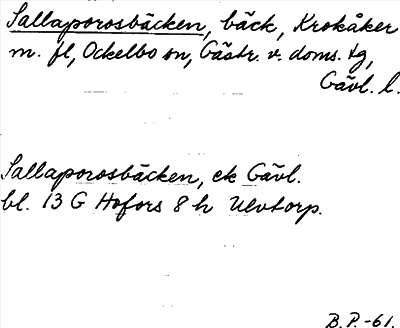 Sallaporosbäcken, bäck, Krokåker
m. fl, Ockelbo sn, Gästr. v. doms. tg,
Gävl. l.
Sallaporosbäcken, ek Gävl.
bl. 13 G Hofors 8 h Ulvtorp.
B.P.-61.